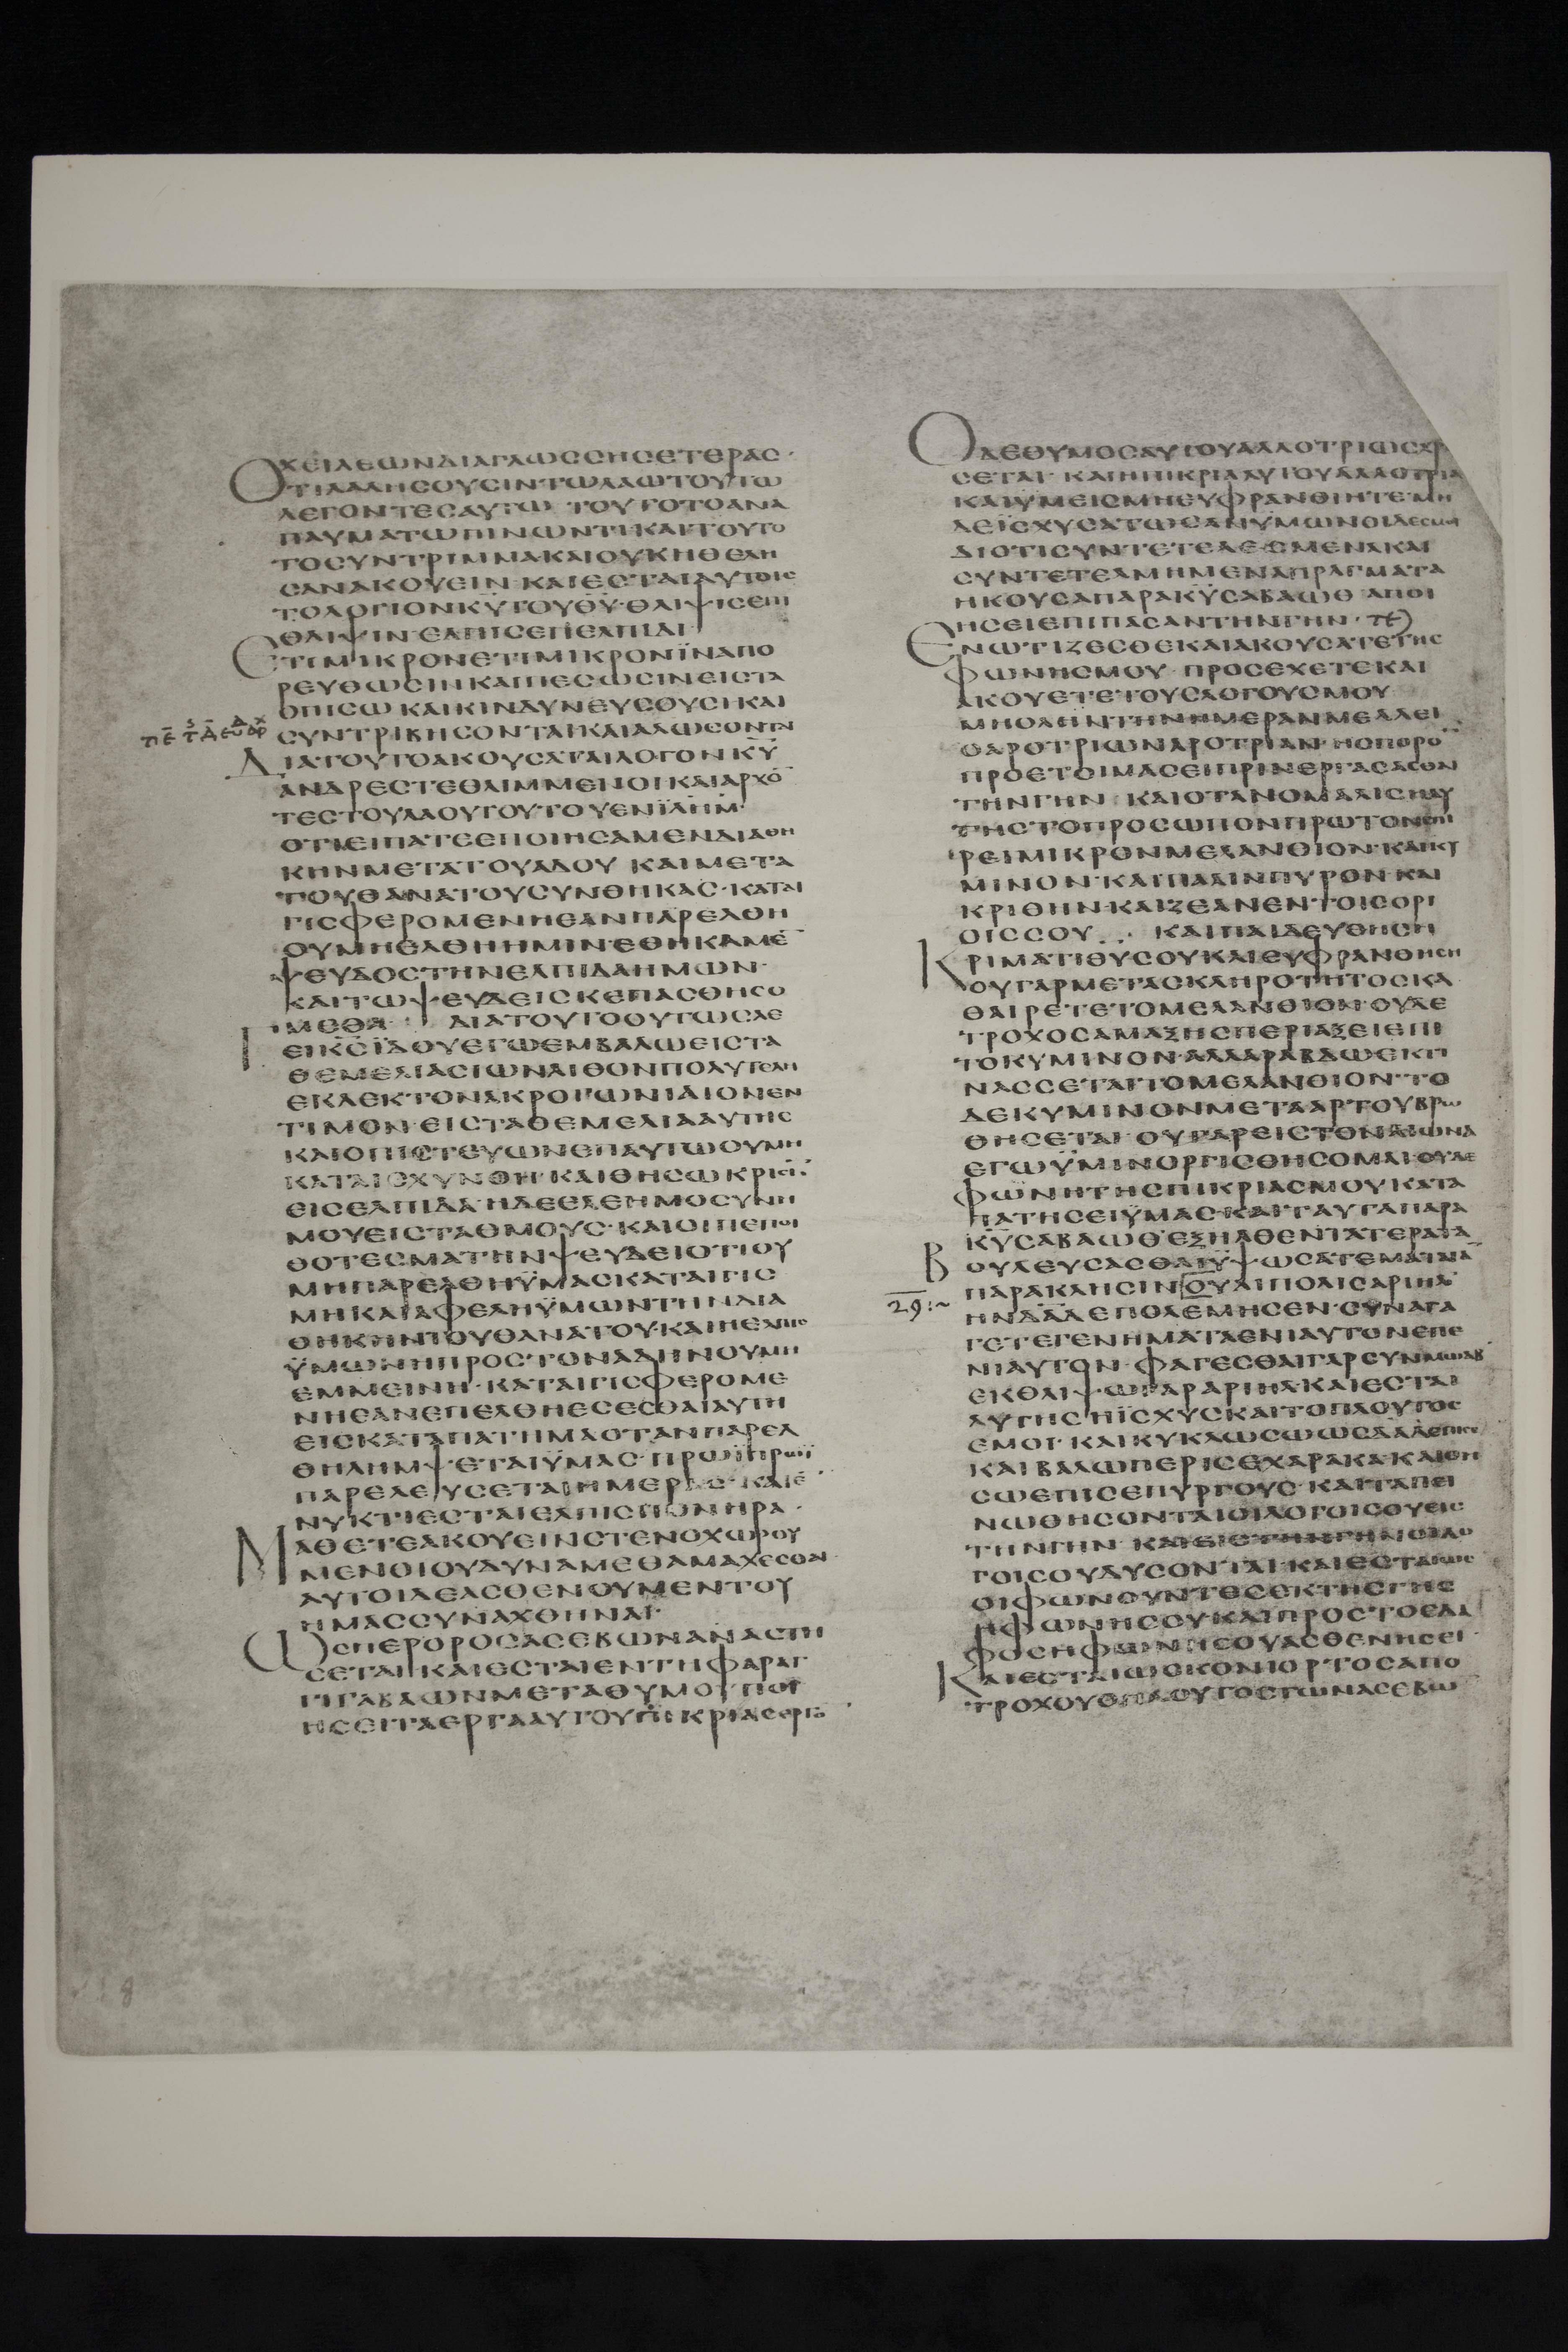 ΧΕΙΛΕΩΝΔΙΑΓΛΩΣΣΗΣΕΤΕΡΑΣ·
ΟΤΙΛΑΛΗΣΟΥΣΙΝΤΩΛΑΩΤΟΥΤΩ
ΛΕΓΟΝΤΕΣΑΥΤΩ ΤΟΥΤΟΤΟΑΝΑ
ΠΑΥΜΑΤΩΠΙΝΩΝΤΙ·ΚΑΙΤΟΥΤΟ
ΤΟΣΥΝΤΡΙΜΜΑΚΑΙΟΥΚΗΘΕΛΗ
ΣΑΝΑΚΟΥΕΙΝ·ΚΑΙΕΣΤΑΙΑΥΤΟΙΣ
ΤΟΛΟΓΙΟΝΚΥΤΟΥΘΥ·ΘΛΙΨΙΣΕΠΙ
ΘΛΙΨΙΝ·ΕΛΠΙΣΕΠΕΛΠΙΔΙ·
ΕΤΙΜΙΚΡΟΝΕΤΙΜΙΚΡΟΝΪΝΑΠΟ
ΡΕΥΘΩΣΙΝΚΑΙΠΕΣΩΣΙΝΕΙΣΤΑ
ΟΠΙΣΩ ΚΑΙΚΙΝΔΥΝΕΥΣΟΥΣΙΚΑΙ
ΣΥΝΤΡΙΒΗΣΟΝΤΑΙΚΑΙΑΛΩΣΟΝΤΑΙ
ΔΙΑΤΟΥΤΟΑΚΟΥΣΑΤΑΙΛΟΓΟΝΚΥ
ΑΝΔΡΕΣΤΕΘΛΙΜΜΕΝΟΙΚΑΙΑΡΧΟ̄
ΤΕΣΤΟΥΛΑΟΥΤΟΥΤΟΥΕΝΪΛΗΜ·
ΟΤΙΕΙΠΑΤΕΕΠΟΙΗΣΑΜΕΝΔΙΑΘΗ
ΚΗΝΜΕΤΑΤΟΥΑΔΟΥ ΚΑΙΜΕΤΑ
ΤΟΥΘΑΝΑΤΟΥΣΥΝΘΗΚΑΣ·ΚΑΤΑΙ
ΓΙΣΦΕΡΟΜΕΝΗΕΑΝΠΑΡΕΛΘΗ
ΟΥΜΗΕΛΘΗΗΜΙΝ·ΕΘΗΚΑΜΕ̄
ΨΕΥΔΟΣΤΗΝΕΛΠΙΔΑΗΜΩΝ·
ΚΑΙΤΩΨΕΥΔΕΙΣΚΕΠΑΣΘΗΣΟ
ΜΕΘΑ ΔΙΑΤΟΥΤΟΟΥΤΩΣΛΕ
ΓΕΙΚΣΪΔΟΥΕΓΩΕΜΒΑΛΩΕΙΣΤΑ
ΘΕΜΕΛΙΑΣΙΩΝΛΙΘΟΝΠΟΛΥΤΕΛΗ
ΕΚΛΕΚΤΟΝΑΚΡΟΓΩΝΙΑΙΟΝΕΝ
ΤΙΜΟΝ·ΕΙΣΤΑΘΕΜΕΛΙΑΑΥΤΗΣ
ΚΑΙΟΠΙΣΤΕΥΩΝΕΠΑΥΤΩΟΥΜΗ
ΚΑΤΑΙΣΧΥΝΘΗ·ΚΑΙΘΗΣΩΚΡΙΣῙ
ΕΙΣΕΛΠΙΔΑ·ΗΔΕΕΛΕΗΜΟΣΥΝΗ
ΜΟΥΕΙΣΤΑΘΜΟΥΣ·ΚΑΙΟΙΠΕΠΟΙ
ΘΟΤΕΣΜΑΤΗΝΨΕΥΔΕΙΟΤΙΟΥ
ΜΗΠΑΡΕΛΘΗΫΜΑΣΚΑΤΑΙΓΙΣ
ΜΗΚΑΙΑΦΕΛΗΫΜΩΝΤΗΝΔΙΑ
ΘΗΚΗΝΤΟΥΘΑΝΑΤΟΥ·ΚΑΙΗΕΛΠΙΣ
ΫΜΩΝΗΠΡΟΣΤΟΝΑΔΗΝΟΥΜΗ
ΕΜΜΕΙΝΗ·ΚΑΤΑΙΓΙΣΦΕΡΟΜΕ
ΝΗΕΑΝΕΠΕΛΘΗΕΣΕΣΘΑΙΑΥΤΗ
ΕΙΣΚΑΤΑΠΑΤΗΜΑΟΤΑΝΠΑΡΕΛ
ΘΗΛΗΜΨΕΤΑΙΫΜΑΣ·ΠΡΩΪΠΡΩΪ
ΠΑΡΕΛΕΥΣΕΤΑΙΗΜΕΡΑΣ·ΚΑΙΕ̄
ΝΥΚΤΙΕΣΤΑΙΕΛΠΙΣΠΟΝΗΡΑ·
ΜΑΘΕΤΕΑΚΟΥΕΙΝΣΤΕΝΟΧΩΡΟΥ
ΜΕΝΟΙΟΥΔΥΝΑΜΕΘΑΜΑΧΕΣΘΑΙ·
ΑΥΤΟΙΔΕΑΣΘΕΝΟΥΜΕΝΤΟΥ
ΗΜΑΣΣΥΝΑΧΘΗΝΑΙ·
ΩΣΠΕΡΟΡΟΣΑΣΕΒΩΝΑΝΑΣΤΗ
ΣΕΤΑΙΚΑΙΕΣΤΑΙΕΝΤΗΦΑΡΑΓ
ΓΙΓΑΒΑΩΝΜΕΤΑΘΥΜΟΥΠΟΙ
ΗΣΕΙΤΑΕΡΓΑΑΥΤΟΥΠΙΚΡΙΑΣΕΡΓΟ̄
ΟΔΕΘΥΜΟΣΑΥΤΟΥΑΛΛΟΤΡΙΩΣΧΡ
ΣΕΤΑΙ· ΚΑΙΗΠΙΚΡΙΑΑΥΤΟΥΑΛΛΟΤΡΙΑ
ΚΑΙΫΜΕΙΣΜΗΕΥΦΡΑΝΘΗΤΕΜΗ
ΔΕΪΣΧΥΣΑΤΩΣΑΝΫΜΩΝΟΙΔΕΣΜΟΙ
ΔΙΟΤΙΣΥΝΤΕΤΕΛΕΣΜΕΝΑΚΑΙ
ΣΥΝΤΕΤΕΛΜΗΜΕΝΑΠΡΑΓΜΑΤΑ
ΗΚΟΥΣΑΠΑΡΑΚΥΣΑΒΑΩΘ·ΑΠΟΙ
ΗΣΕΙΕΠΙΠΑΣΑΝΤΗΝΓΗΝ·
ΕΝΩΤΙΖΕΣΘΕΚΑΙΑΚΟΥΣΑΤΕΤΗΣ
ΦΩΝΗΣΜΟΥ·ΠΡΟΣΕΧΕΤΕΚΑΙ
ΑΚΟΥΕΤΕΤΟΥΣΛΟΓΟΥΣΜΟΥ·
ΜΗΟΛΗΝΤΗΝΗΜΕΡΑΝΜΕΛΛΕΙ
ΟΑΡΟΤΡΙΩΝΑΡΟΤΡΙΑΝ·ΗΣΠΟΡΟ̄
ΠΡΟΕΤΟΙΜΑΣΕΙΠΡΙΝΕΡΓΑΣΑΣΘΑΙ
ΤΗΝΓΗΝ ΚΑΙΟΤΑΝΟΜΑΛΙΣΗΑΥ
ΤΗΣΤΟΠΡΟΣΩΠΟΝΠΡΩΤΟΝΣΠΙ
ΡΕΙΜΙΚΡΟΝΜΕΛΑΝΘΙΟΝ·ΚΑΙΚΥ
ΜΙΝΟΝ·ΚΑΙΠΑΛΙΝΠΥΡΟΝ·ΚΑΙ
ΚΡΙΘΗΝ·ΚΑΙΖΕΑΝΕΝΤΟΙΣΟΡΙ
ΟΙΣΣΟΥ ΚΑΙΠΑΙΔΕΥΘΗΣΗ
ΚΡΙΜΑΤΙΘΥΣΟΥΚΑΙΕΥΦΡΑΝΘΗΣΗ
ΟΥΓΑΡΜΕΤΑΣΚΛΗΡΟΤΗΤΟΣΚΑ
ΘΑΙΡΕΤΕΤΟΜΕΛΑΝΘΙΟΝ·ΟΥΔΕ
ΤΡΟΧΟΣΑΜΑΞΗΣΠΕΡΙΑΞΕΙΕΠΙ
ΤΟΚΥΜΙΝΟΝ·ΑΛΛΑΡΑΒΔΩΕΚΤΙ
ΝΑΣΣΕΤΑΙΤΟΜΕΛΑΝΘΙΟΝ·ΤΟ
ΔΕΚΥΜΙΝΟΝΜΕΤΑΑΡΤΟΥΒΡΩ
ΘΗΣΕΤΑΙ·ΟΥΓΑΡΕΙΣΤΟΝΑΙΩΝΑ
ΕΓΩΫΜΙΝΟΡΓΙΣΘΗΣΟΜΑΙ·ΟΥΔΕ
ΦΩΝΗΤΗΣΠΙΚΡΙΑΣΜΟΥΚΑΤΑ
ΠΑΤΗΣΕΙΫΜΑΣ·ΚΑΙΤΑΥΤΑΠΑΡΑ
ΚΥΣΑΒΑΩΘΕΞΗΛΘΕΝΤΑΤΕΡΑΤΑ
ΒΟΥΛΕΥΣΑΣΘΑΙΫΨΩΣΑΤΕΜΑΤΑΙᾹ
ΠΑΡΑΚΛΗΣΙΝΟΥΑΙΠΟΛΙΣΑΡΙΗΛ
ΗΝΔΑΔΕΠΟΛΕΜΗΣΕΝ·ΣΥΝΑΓΑ
ΓΕΤΕΓΕΝΗΜΑΤΑΕΝΙΑΥΤΟΝΕΠΕ
ΝΙΑΥΤΟΝ·ΦΑΓΕΣΘΑΙΓΑΡΣΥΝΜΩΑΒ
ΕΚΘΛΙΨΩΓΑΡΑΡΙΗΛ·ΚΑΙΕΣΤΑΙ
ΑΥΤΗΣΗΪΣΧΥΣΚΑΙΤΟΠΛΟΥΤΟΣ
ΕΜΟΙ·ΚΑΙΚΥΚΛΩΣΩΩΣΔΑΔΕΠΙΣΕ
ΚΑΙΒΑΛΩΠΕΡΙΣΕΧΑΡΑΚΑ·ΚΑΙΘΗ
ΣΩΕΠΙΣΕΠΥΡΓΟΥΣ·ΚΑΙΤΑΠΕΙ
ΝΩΘΗΣΟΝΤΑΙΟΙΛΟΓΟΙΣΟΥΕΙΣ
ΤΗΝΓΗΝ ΚΑΙΕΙΣΤΗΝΓΗΝΟΙΛΟ
ΓΟΙΣΟΥΔΥΣΟΝΤΑΙ·ΚΑΙΕΣΤΑΙΩΣ
ΟΙΦΩΝΟΥΝΤΕΣΕΚΤΗΣΓΗΣ
ΗΦΩΝΗΣΟΥ·ΚΑΙΠΡΟΣΤΟΕΔΑ
ΦΟΣΗΦΩΝΗΣΟΥΑΣΘΕΝΗΣΕΙ·
ΚΑΙΕΣΤΑΙΩΣΚΟΝΙΟΡΤΟΣΑΠΟ
ΤΡΟΧΟΥΟΠΛΟΥΤΟΣΤΩΝΑΣΕΒΩ̄